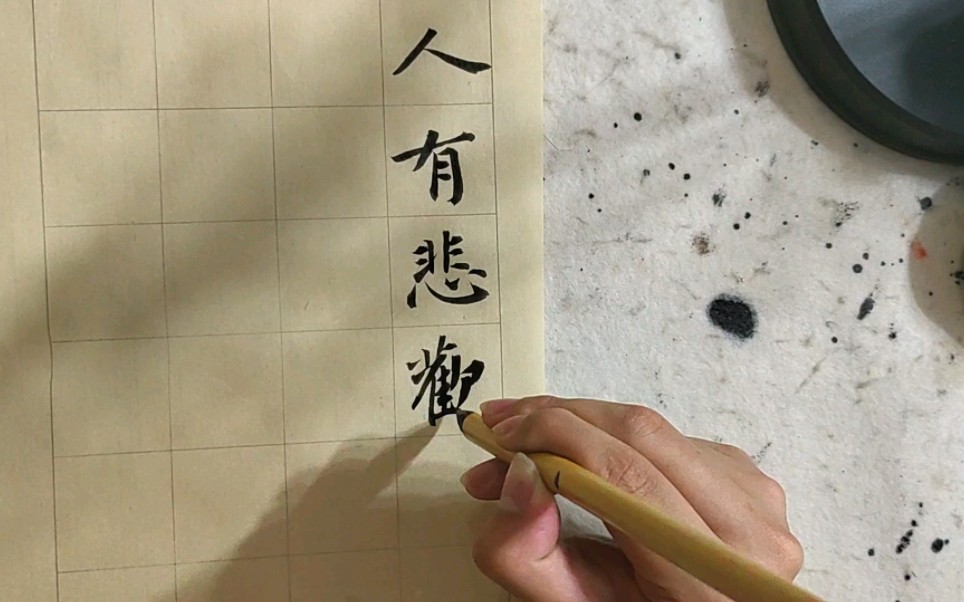 人有悲歡